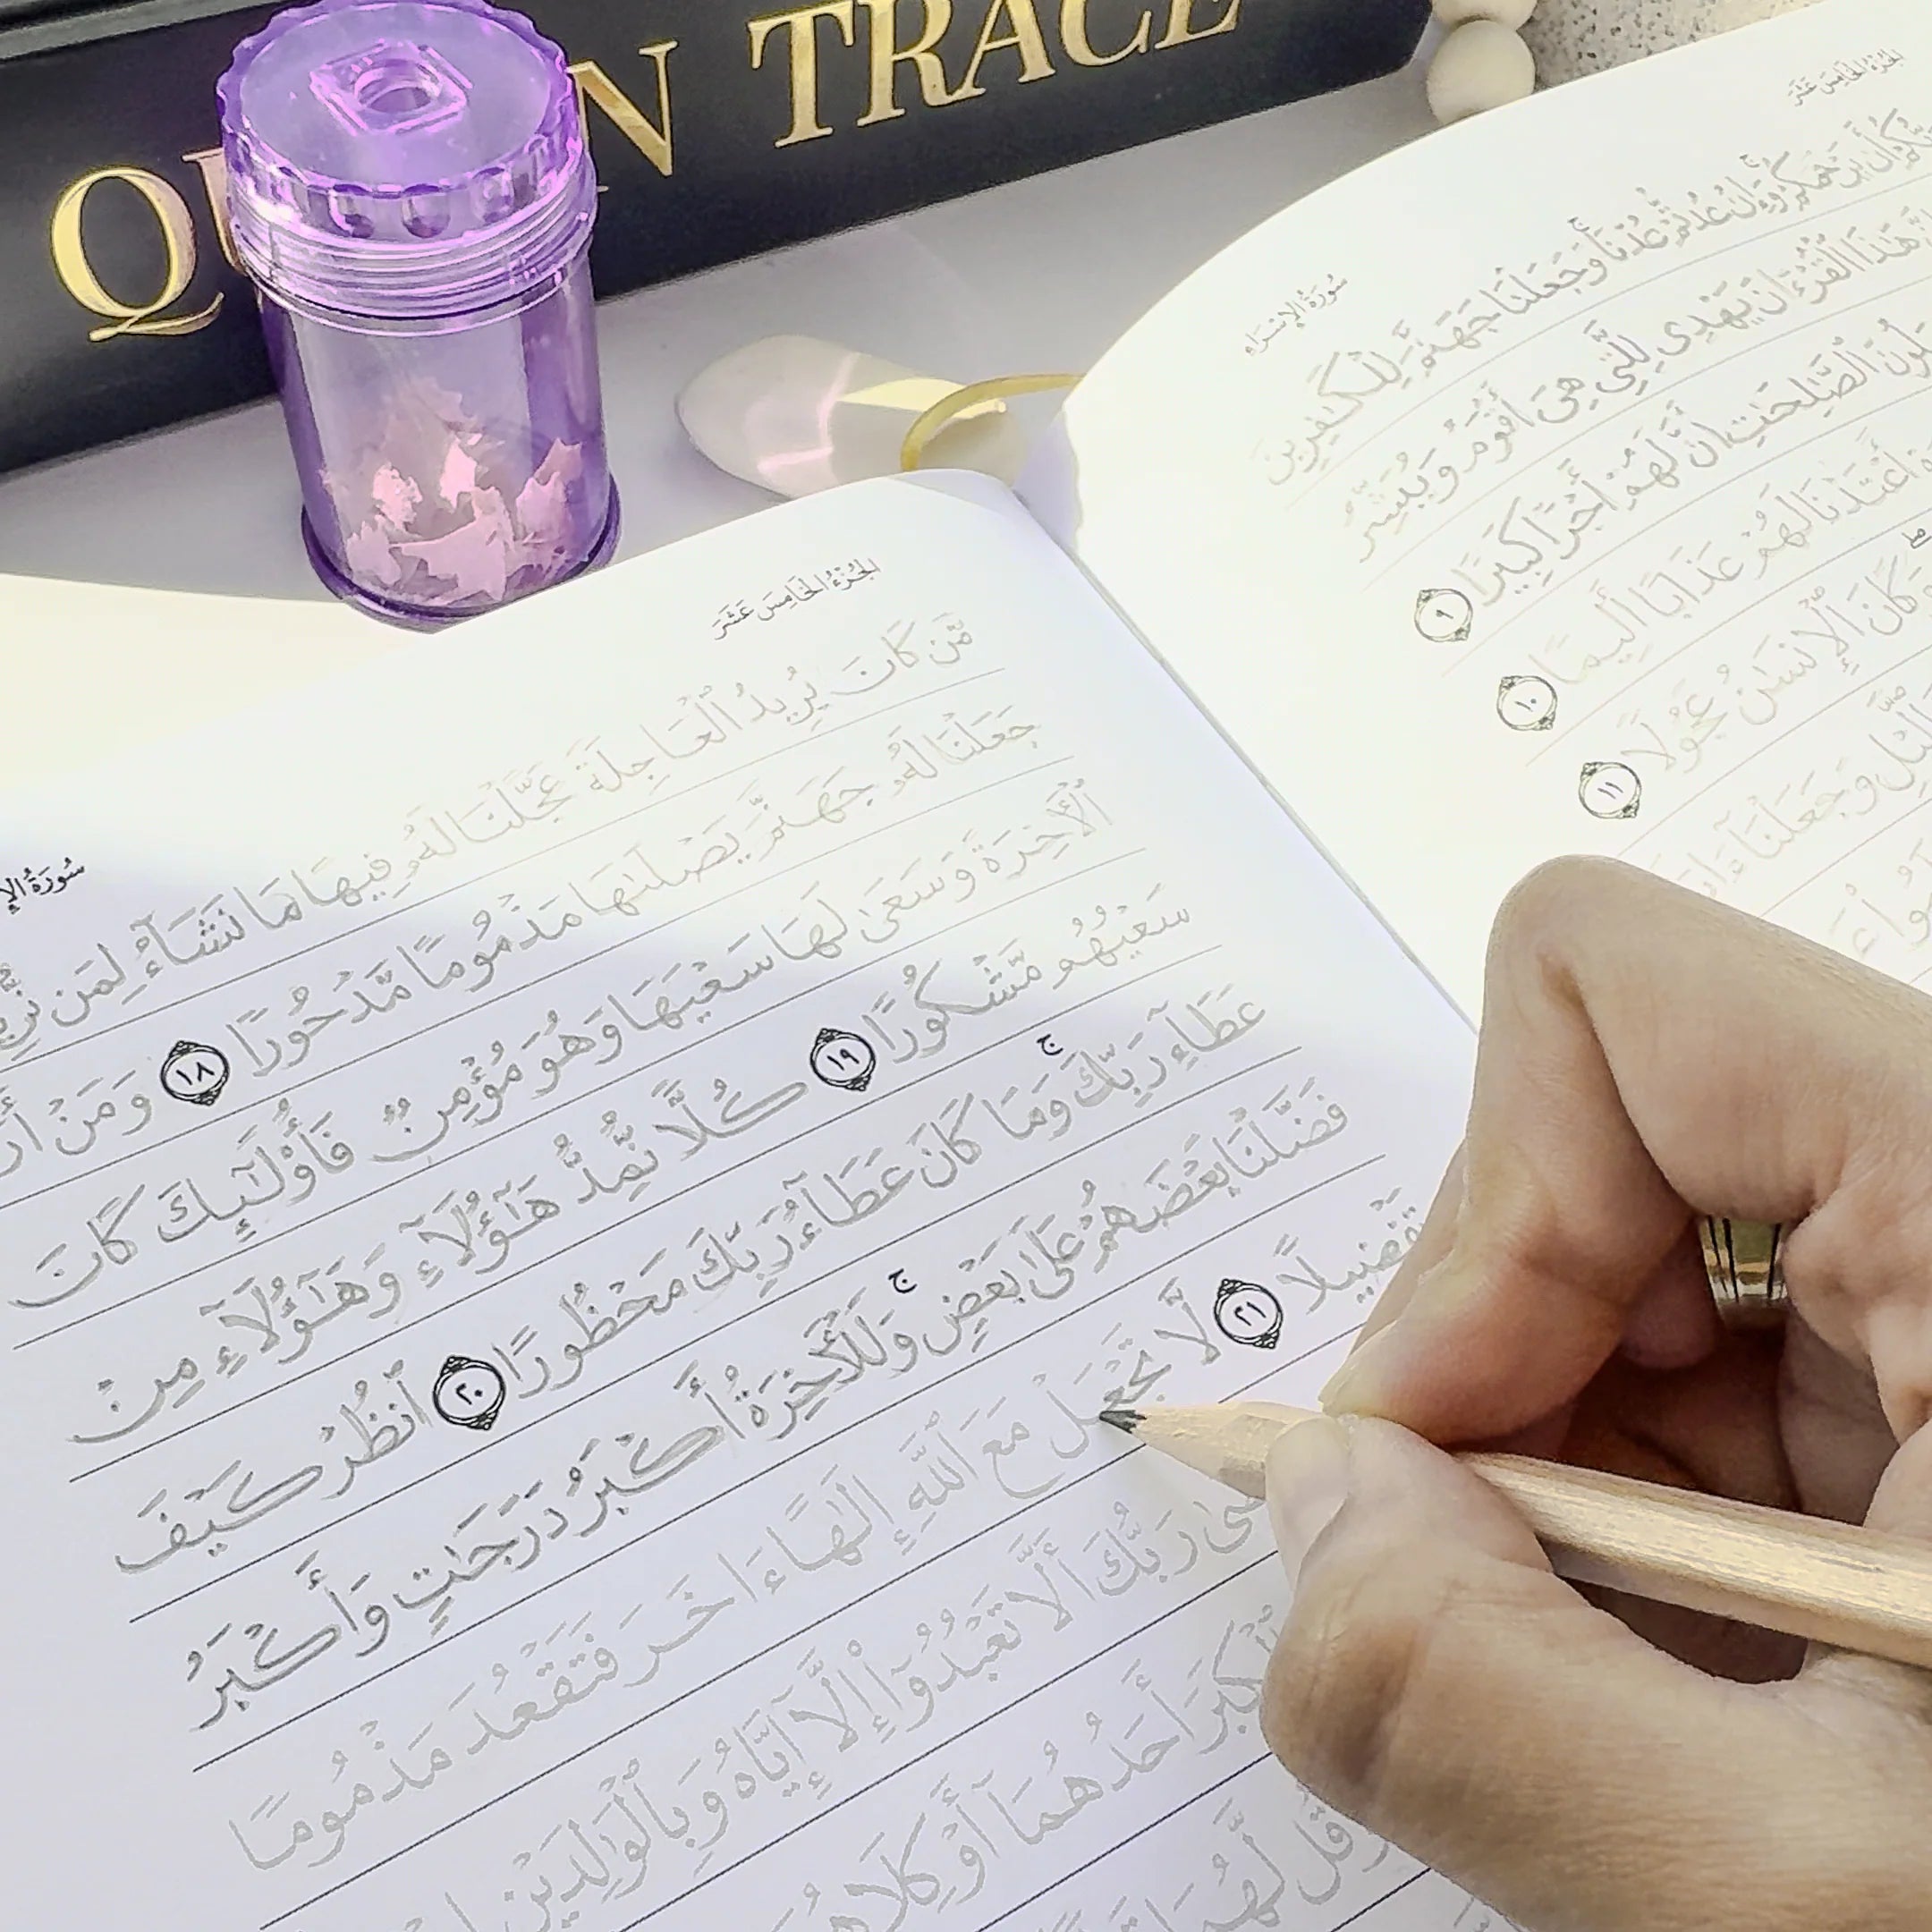 QU N TRACE
الجُزْءُ الخَامِسَ عَشَرَ
سُورَةُ الإِسْرَاءِ
أَن يَرْحَمَكُمْ ۚ وَإِنْ عُدتُّمْ عُدْنَا ۘ وَجَعَلْنَا جَهَنَّمَ لِلْكَٰفِرِينَ
هَٰذَا ٱلْقُرْءَانَ يَهْدِى لِلَّتِى هِىَ أَقْوَمُ وَيُبَشِّرُ
ٱلصَّٰلِحَٰتِ أَنَّ لَهُمْ أَجْرًا كَبِيرًا ٩
أَعْتَدْنَا لَهُمْ عَذَابًا أَلِيمًا ١٠
وَكَانَ ٱلْإِنسَٰنُ عَجُولًا ١١
وَجَعَلْنَا
الجُزْءُ الخَامِسَ عَشَرَ
سُورَةُ
مَّن كَانَ يُرِيدُ ٱلْعَاجِلَةَ عَجَّلْنَا لَهُۥ فِيهَا مَا نَشَآءُ لِمَن
جَعَلْنَا لَهُۥ جَهَنَّمَ يَصْلَىٰهَا مَذْمُومًا مَّدْحُورًا ١٨ وَمَنْ
ٱلْأَخِرَةَ وَسَعَىٰ لَهَا سَعْيَهَا وَهُوَ مُؤْمِنٌ فَأُو۟لَٰٓئِكَ كَانَ
سَعْيُهُم مَّشْكُورًا ١٩ كُلًّا نُّمِدُّ هَٰٓؤُلَآءِ وَهَٰٓؤُلَآءِ مِنْ
عَطَآءِ رَبِّكَ ۚ وَمَا كَانَ عَطَآءُ رَبِّكَ مَحْظُورًا ٢٠ ٱنظُرْ كَيْفَ
فَضَّلْنَا بَعْضَهُمْ عَلَىٰ بَعْضٍ ۚ وَلَلْأَخِرَةُ أَكْبَرُ دَرَجَٰتٍ وَأَكْبَرُ
تَفْضِيلًا ٢١ لَّا تَجْعَلْ مَعَ ٱللَّهِ إِلَٰهًا ءَاخَرَ فَتَقْعُدَ مَذْمُومًا
رَبُّكَ أَلَّا تَعْبُدُوٓا۟ إِلَّآ إِيَّاهُ وَبِٱلْوَٰلِدَيْنِ
ٱلْكِبَرَ أَحَدُهُمَآ أَوْ كِلَاهُمَا
قُل لَّهُمَا